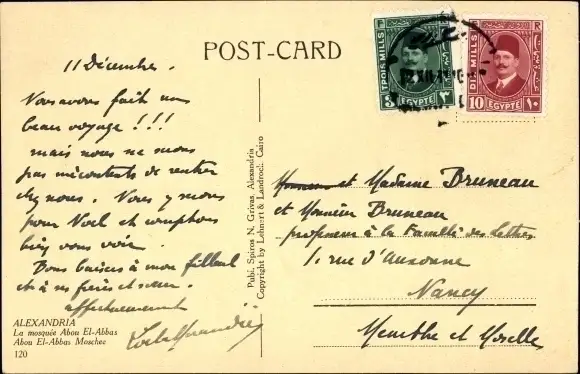 POST-CARD
11 Décembre.
Nous avons fait un
beau voyage !!!
mais nous ne sommes
pas mécontents de rentrer
chez nous. Nous y serons
pour Noël et comptons
bien vous voir.
Bons baisers à mon filleul
et à ses frère et sœur.
affectueusement
ALEXANDRIA
La mosquée Abou El-Abbas
Abou El-Abbas Moschee
120
Publ. Spiros N. Grivas, Alexandria
Copyright by Lehnert & Landrock, Cairo
TROIS MILLS
3 ٣
EGYPTE
DIX MILLS
10 ١٠
EGYPTE
et Madame Bruneau
et Monsieur Bruneau
professeur à la Faculté des Lettres
1. rue d'Auxonne
Nancy
Meurthe et Moselle